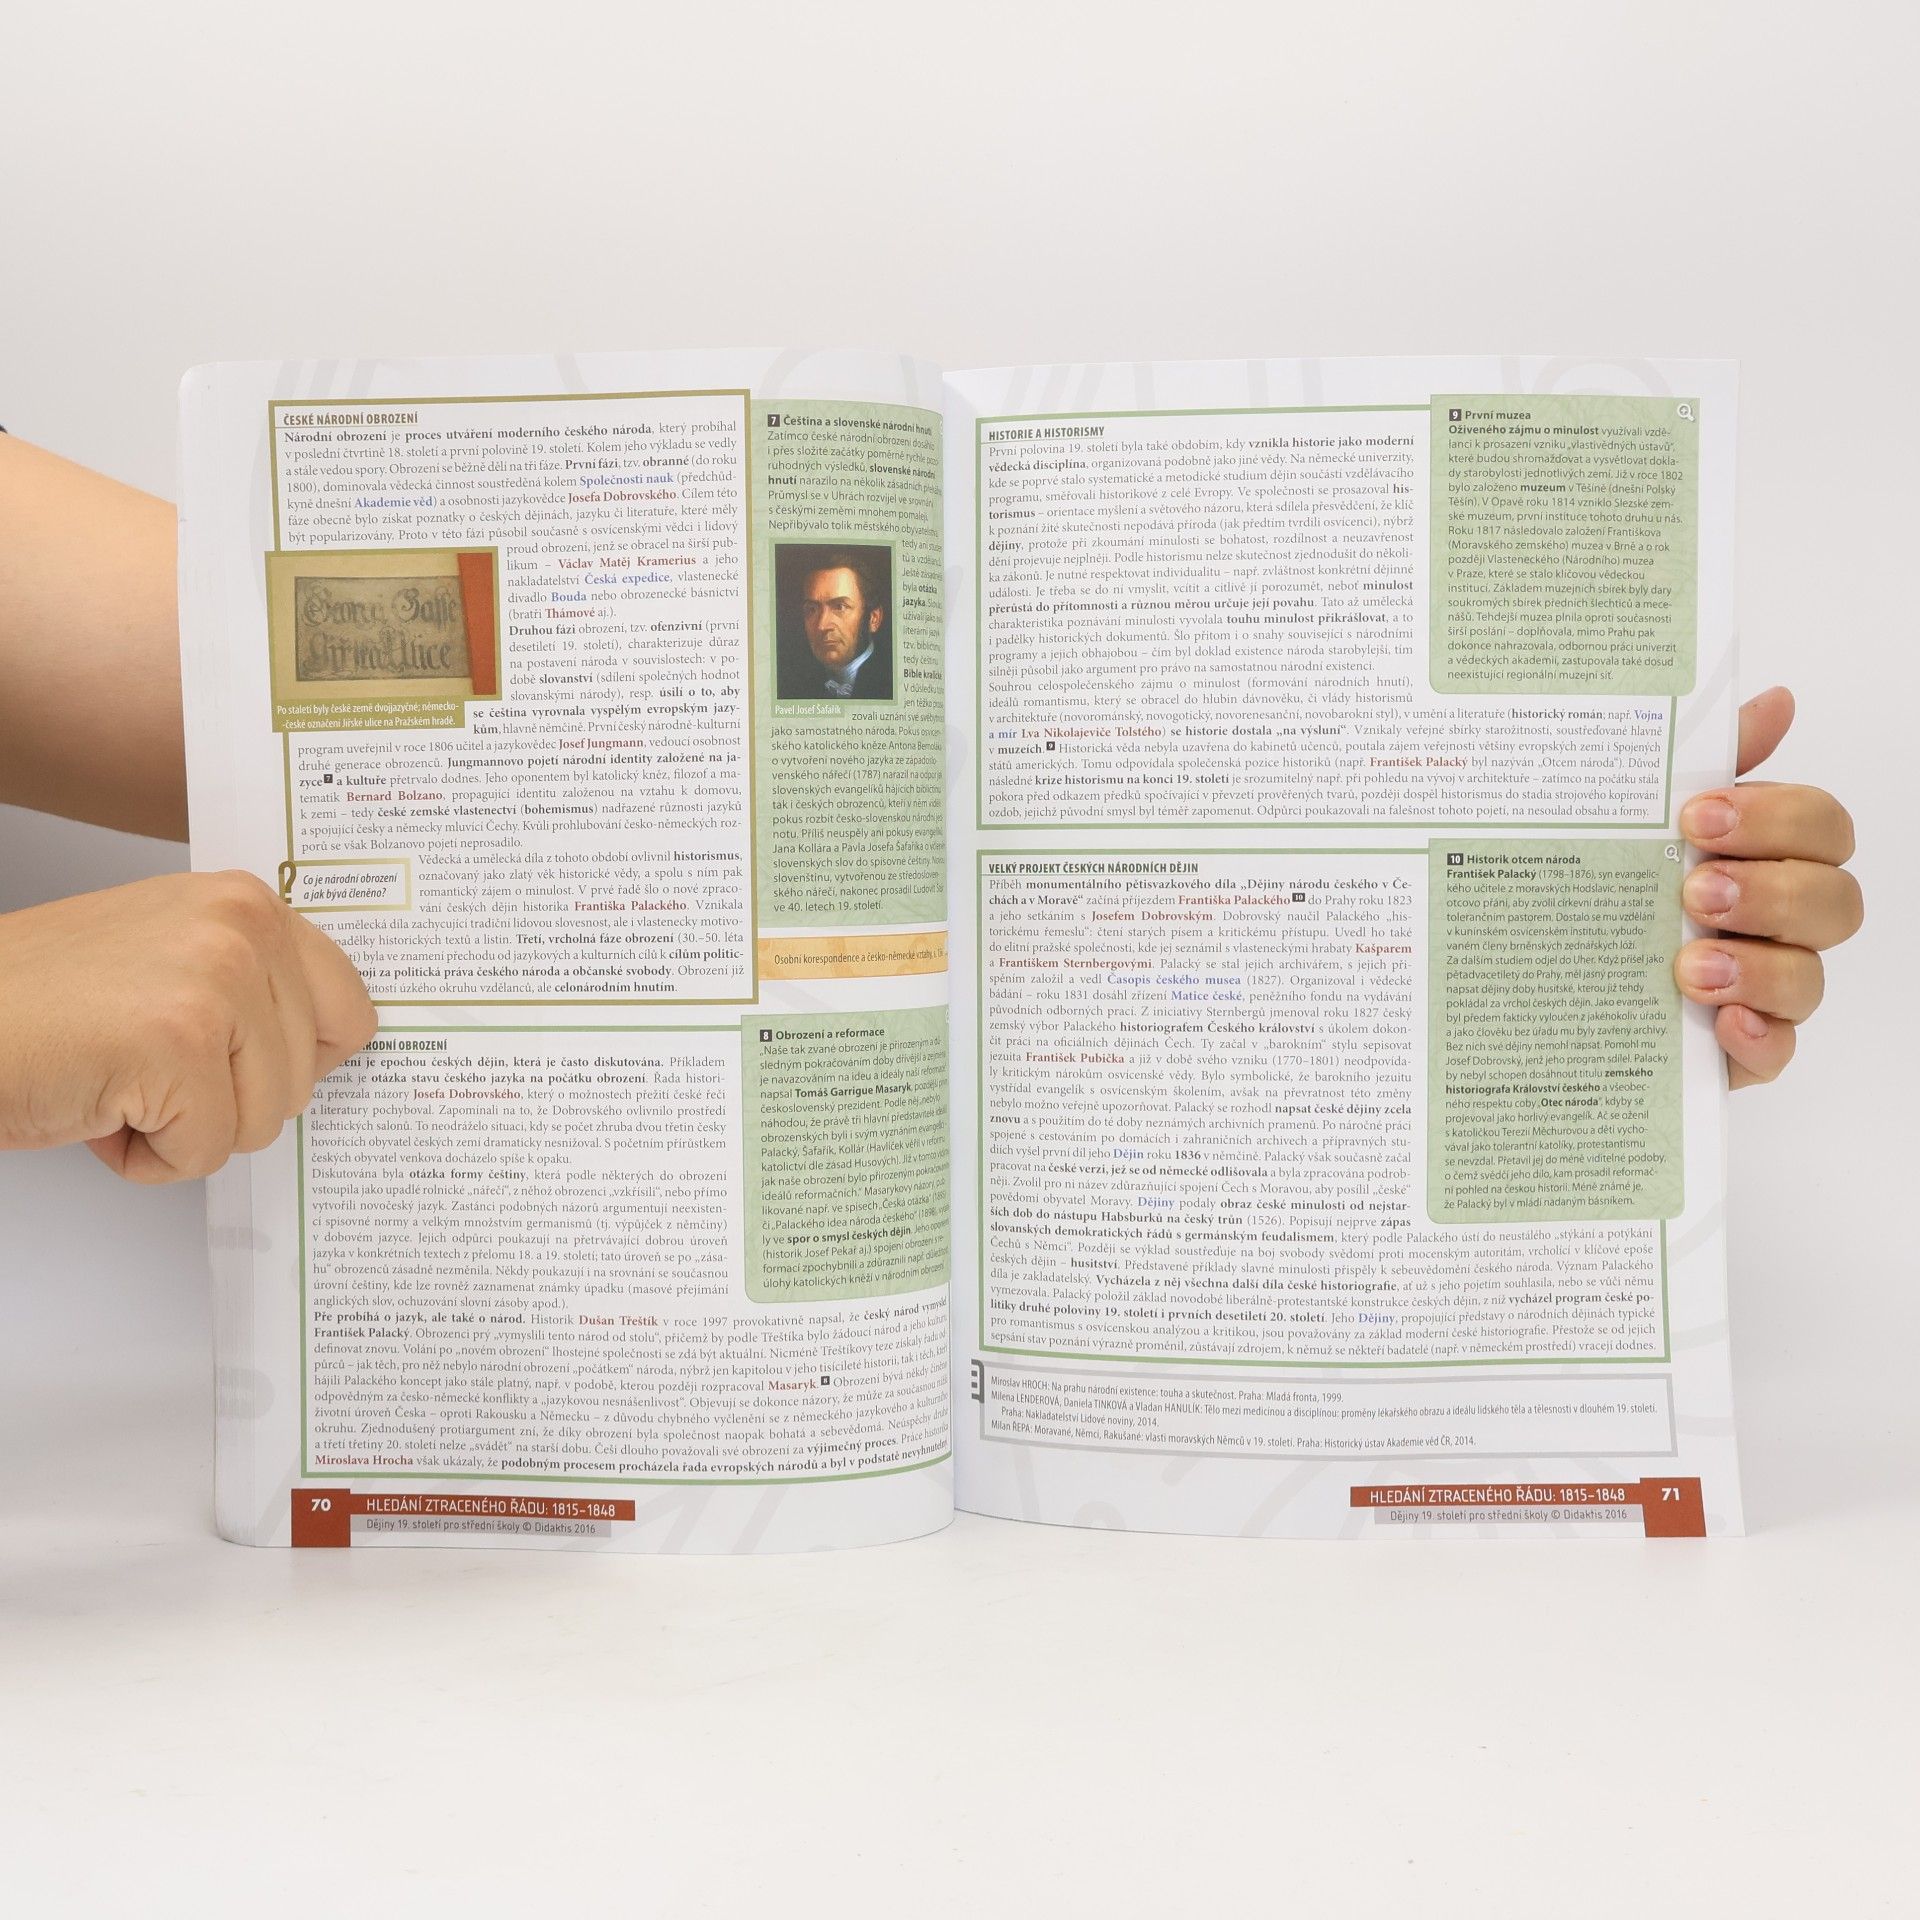 ČESKÉ NÁRODNÍ OBROZENÍ
Národní obrození je proces utváření moderního českého národa, který probíhal
v poslední čtvrtině 18. století a první polovině 19. století. Kolem jeho výkladu se vedly
a stále vedou spory. Obrození se běžně dělí na tři fáze. První fázi, tzv. obranné (do roku
1800), dominovala vědecká činnost soustředěná kolem Společnosti nauk (předchůd-
kyně dnešní Akademie věd) a osobnosti jazykovědce Josefa Dobrovského. Cílem této
fáze obecně bylo získat poznatky o českých dějinách, jazyku či literatuře, které měly
být popularizovány. Proto v této fázi působil současně s osvícenskými vědci i lidový
proud obrození, jenž se obracel na širší pub-
likum – Václav Matěj Kramerius a jeho
nakladatelství Česká expedice, vlastenecké
divadlo Bouda nebo obrozenecké básnictví
(bratři Thámové aj.).
Druhou fázi obrození, tzv. ofenzivní (první
desetiletí 19. století), charakterizuje důraz
na postavení národa v souvislostech: v po-
době slovanství (sdílení společných hodnot
slovanskými národy), resp. úsilí o to, aby
se čeština vyrovnala vyspělým evropským jazy-
kům, hlavně němčině. První český národně-kulturní
program uveřejnil v roce 1806 učitel a jazykovědec Josef Jungmann, vedoucí osobnost
druhé generace obrozenců. Jungmannovo pojetí národní identity založené na ja-
zyce 7 a kultuře přetrvalo dodnes. Jeho oponentem byl katolický kněz, filozof a ma-
tematik Bernard Bolzano, propagující identitu založenou na vztahu k domovu,
k zemi – tedy české zemské vlastenectví (bohemismus) nadřazené různosti jazyků
a spojující česky a německy mluvící Čechy. Kvůli prohlubování česko-německých roz-
porů se však Bolzanovo pojetí neprosadilo.
Vědecká a umělecká díla z tohoto období ovlivnil historismus,
označovaný jako zlatý věk historické vědy, a spolu s ním pak
romantický zájem o minulost. V prvé řadě šlo o nové zpraco-
vání českých dějin historika Františka Palackého. Vznikala
jen umělecká díla zachycující tradiční lidovou slovesnost, ale i vlastenecky motivo-
padělky historických textů a listin. Třetí, vrcholná fáze obrození (30.–50. léta
byla ve znamení přechodu od jazykových a kulturních cílů k cílům politic-
boji za politická práva českého národa a občanské svobody. Obrození již
úzkého okruhu vzdělanců, ale celonárodním hnutím.
Po staletí byly české země dvojjazyčné; německo-
-české označení Jiřské ulice na Pražském hradě.
? Co je národní obrození
a jak bývá členěno?
7 Čeština a slovenské národní hnutí
Zatímco české národní obrození dosáhlo
i přes složité začátky poměrně rychle pozo-
ruhodných výsledků, slovenské národní
hnutí narazilo na několik zásadních překážek.
Průmysl se v Uhrách rozvíjel ve srovnání
s českými zeměmi mnohem pomaleji.
Nepřibývalo tolik městského obyvatelstva,
byla otázka
jazyka.
Bible kralické
Pavel Josef Šafařík
zovali uznání své svébytnosti
jako samostatného národa. Pokus osvícen-
ského katolického kněze Antona Bernoláka
o vytvoření nového jazyka ze západoslo-
venského nářečí (1787) narazil na odpor jak
slovenských evangelíků hájících bibličtinu,
tak i českých obrozenců, kteří v něm viděli
pokus rozbít česko-slovenskou národní jed-
notu. Příliš neuspěly ani pokusy evangelíků
Jana Kollára a Pavla Josefa Šafaříka o včlenění
slovenských slov do spisovné češtiny. Novou
slovenštinu, vytvořenou ze středosloven-
ského nářečí, nakonec prosadil Ľudovít Štúr
ve 40. letech 19. století.
Osobní korespondence a česko-německé vztahy, s.
OBROZENÍ
je epochou českých dějin, která je často diskutována. Příkladem
je otázka stavu českého jazyka na počátku obrození. Řada histori-
ků převzala názory Josefa Dobrovského, který o možnostech přežití české řeči
a literatury pochyboval. Zapomínali na to, že Dobrovského ovlivnilo prostředí
šlechtických salonů. To neodráželo situaci, kdy se počet zhruba dvou třetin česky
hovořících obyvatel českých zemí dramaticky nesnižoval. S početním přírůstkem
českých obyvatel venkova docházelo spíše k opaku.
Diskutována byla otázka formy češtiny, která podle některých do obrození
vstoupila jako upadlé rolnické „nářečí“, z něhož obrozenci „vzkřísili“, nebo přímo
vytvořili novočeský jazyk. Zastánci podobných názorů argumentují neexisten-
cí spisovné normy a velkým množstvím germanismů (tj. výpůjček z němčiny)
v dobovém jazyce. Jejich odpůrci poukazují na přetrvávající dobrou úroveň
jazyka v konkrétních textech z přelomu 18. a 19. století; tato úroveň se po „zása-
hu“ obrozenců zásadně nezměnila. Někdy poukazují i na srovnání se současnou
úrovní češtiny, kde lze rovněž zaznamenat známky úpadku (masové přejímání
anglických slov, ochuzování slovní zásoby apod.).
Pře probíhá o jazyk, ale také o národ. Historik Dušan Třeštík v roce 1997 provokativně napsal, že český národ vymyslel
František Palacký. Obrozenci prý „vymysleli tento národ od stolu“, přičemž by podle Třeštíka bylo žádoucí národ a jeho kulturu
definovat znovu. Volání po „novém obrození“ lhostejné společnosti se zdá být aktuální. Nicméně Třeštíkovy teze získaly řadu od-
půrců – jak těch, pro něž nebylo národní obrození „počátkem“ národa, nýbrž jen kapitolou v jeho tisícileté historii, tak i těch, kteří
hájili Palackého koncept jako stále platný, např. v podobě, kterou později rozpracoval Masaryk. 8 Obrození bývá někdy činěno
odpovědným za česko-německé konflikty a „jazykovou nesnášenlivost“. Objevují se dokonce názory, že může za současnou nižší
životní úroveň Česka – oproti Rakousku a Německu – z důvodu chybného vyčlenění se z německého jazykového a kulturního
okruhu. Zjednodušený protiargument zní, že díky obrození byla společnost naopak bohatá a sebevědomá. Neúspěchy druhé
a třetí třetiny 20. století nelze „svádět“ na starší dobu. Češi dlouho považovali své obrození za výjimečný proces. Práce historika
Miroslava Hrocha však ukázaly, že podobným procesem procházela řada evropských národů a byl v podstatě nevyhnutelný.
8 Obrození a reformace
„Naše tak zvané obrození je přirozeným a dů-
sledným pokračováním doby dřívější a zejména
je navazováním na ideu a ideály naší reformace“,
napsal Tomáš Garrigue Masaryk, pozdější první
československý prezident. Podle něj „nebylo
náhodou, že právě tři hlavní představitelé ideálů
obrozenských byli i svým vyznáním evangelíci –
Palacký, Šafařík, Kollár (Havlíček věřil v reformu
katolictví dle zásad Husových). Již v tomto vidíme,
jak naše obrození bylo přirozeným pokračováním
ideálů reformačních.“ Masarykovy názory, pub-
likované např. ve spisech „Česká otázka“ (1895)
či „Palackého idea národa českého“ (1898), vyústi-
ly ve spor o smysl českých dějin. Jeho oponenti
(historik Josef Pekař aj.) spojení obrození s re-
formací zpochybnili a zdůraznili např. důležitost
úlohy katolických kněží v národním obrození.
70 HLEDÁNÍ ZTRACENÉHO ŘÁDU: 1815–1848
Dějiny 19. století pro střední školy © Didaktis 2016
HISTORIE A HISTORISMY
První polovina 19. století byla také obdobím, kdy vznikla historie jako moderní
vědecká disciplína, organizovaná podobně jako jiné vědy. Na německé univerzity,
kde se poprvé stalo systematické a metodické studium dějin součástí vzdělávacího
programu, směřovali historikové z celé Evropy. Ve společnosti se prosazoval his-
torismus – orientace myšlení a světového názoru, která sdílela přesvědčení, že klíč
k poznání žité skutečnosti nepodává příroda (jak předtím tvrdili osvícenci), nýbrž
dějiny, protože při zkoumání minulosti se bohatost, rozdílnost a neuzavřenost
dění projevuje nejplněji. Podle historismu nelze skutečnost zjednodušit do několi-
ka zákonů. Je nutné respektovat individualitu – např. zvláštnost konkrétní dějinné
události. Je třeba se do ní vmyslit, vcítit a citlivě jí porozumět, neboť minulost
přerůstá do přítomnosti a různou měrou určuje její povahu. Tato až umělecká
charakteristika poznávání minulosti vyvolala touhu minulost přikrášlovat, a to
i padělky historických dokumentů. Šlo přitom i o snahy související s národními
programy a jejich obhajobou – čím byl doklad existence národa starobylejší, tím
silněji působil jako argument pro právo na samostatnou národní existenci.
Souhrou celospolečenského zájmu o minulost (formování národních hnutí),
ideálů romantismu, který se obracel do hlubin dávnověku, či vlády historismů
v architektuře (novorománský, novogotický, novorenesanční, novobarokní styl), v umění a literatuře (historický román; např. Vojna
a mír Lva Nikolajeviče Tolstého) se historie dostala „na výsluní“. Vznikaly veřejné sbírky starožitností, soustřeďované hlavně
v muzeích. 9 Historická věda nebyla uzavřena do kabinetů učenců, poutala zájem veřejnosti většiny evropských zemí i Spojených
států amerických. Tomu odpovídala společenská pozice historiků (např. František Palacký byl nazýván „Otcem národa“). Důvod
následné krize historismu na konci 19. století je srozumitelný např. při pohledu na vývoj v architektuře – zatímco na počátku stála
pokora před odkazem předků spočívající v převzetí prověřených tvarů, později dospěl historismus do stadia strojového kopírování
ozdob, jejichž původní smysl byl téměř zapomenut. Odpůrci poukazovali na falešnost tohoto pojetí, na nesoulad obsahu a formy.
9 První muzea
Oživeného zájmu o minulost využívali vzdě-
lanci k prosazení vzniku „vlastivědných ústavů“,
které budou shromažďovat a vysvětlovat dokla-
dy starobylosti jednotlivých zemí. Již v roce 1802
bylo založeno muzeum v Těšíně (dnešní Polský
Těšín). V Opavě roku 1814 vzniklo Slezské zem-
ské muzeum, první instituce tohoto druhu u nás.
Roku 1817 následovalo založení Františkova
(Moravského zemského) muzea v Brně a o rok
později Vlasteneckého (Národního) muzea
v Praze, které se stalo klíčovou vědeckou
institucí. Základem muzejních sbírek byly dary
soukromých sbírek předních šlechticů a mece-
nášů. Tehdejší muzea plnila oproti současnosti
širší poslání – doplňovala, mimo Prahu pak
dokonce nahrazovala, odbornou práci univerzit
a vědeckých akademií, zastupovala také dosud
neexistující regionální muzejní síť.
VELKÝ PROJEKT ČESKÝCH NÁRODNÍCH DĚJIN
Příběh monumentálního pětisvazkového díla „Dějiny národu českého v Če-
chách a v Moravě“ začíná příjezdem Františka Palackého 10 do Prahy roku 1823
a jeho setkáním s Josefem Dobrovským. Dobrovský naučil Palackého „his-
torickému řemeslu“: čtení starých písem a kritickému přístupu. Uvedl ho také
do elitní pražské společnosti, kde jej seznámil s vlasteneckými hrabaty Kašparem
a Františkem Sternbergovými. Palacký se stal jejich archivářem, s jejich při-
spěním založil a vedl Časopis českého musea (1827). Organizoval i vědecké
bádání – roku 1831 dosáhl zřízení Matice české, peněžního fondu na vydávání
původních odborných prací. Z iniciativy Sternbergů jmenoval roku 1827 český
zemský výbor Palackého historiografem Českého království s úkolem dokon-
čit práci na oficiálních dějinách Čech. Ty začal v „barokním“ stylu sepisovat
jezuita František Pubička a již v době svého vzniku (1770–1801) neodpovída-
ly kritickým nárokům osvícenské vědy. Bylo symbolické, že barokního jezuitu
vystřídal evangelík s osvícenským školením, avšak na převratnost této změny
nebylo možno veřejně upozorňovat. Palacký se rozhodl napsat české dějiny zcela
znovu a s použitím do té doby neznámých archivních pramenů. Po náročné práci
spojené s cestováním po domácích i zahraničních archivech a přípravných stu-
diích vyšel první díl jeho Dějin roku 1836 v němčině. Palacký však současně začal
pracovat na české verzi, jež se od německé odlišovala a byla zpracována podrob-
něji. Zvolil pro ni název zdůrazňující spojení Čech s Moravou, aby posílil „české“
povědomí obyvatel Moravy. Dějiny podaly obraz české minulosti od nejstar-
ších dob do nástupu Habsburků na český trůn (1526). Popisují nejprve zápas
slovanských demokratických řádů s germánským feudalismem, který podle Palackého ústí do neustálého „stýkání a potýkání
Čechů s Němci“. Později se výklad soustřeďuje na boj svobody svědomí proti mocenským autoritám, vrcholící v klíčové epoše
českých dějin – husitství. Představené příklady slavné minulosti přispěly k sebeuvědomění českého národa. Význam Palackého
díla je zakladatelský. Vycházela z něj všechna další díla české historiografie, ať už s jeho pojetím souhlasila, nebo se vůči němu
vymezovala. Palacký položil základ novodobé liberálně-protestantské konstrukce českých dějin, z níž vycházel program české po-
litiky druhé poloviny 19. století i prvních desetiletí 20. století. Jeho Dějiny, propojující představy o národních dějinách typické
pro romantismus s osvícenskou analýzou a kritikou, jsou považovány za základ moderní české historiografie. Přestože se od jejich
sepsání stav poznání výrazně proměnil, zůstávají zdrojem, k němuž se někteří badatelé (např. v německém prostředí) vracejí dodnes.
10 Historik otcem národa
František Palacký (1798–1876), syn evangelic-
kého učitele z moravských Hodslavic, nenaplnil
otcovo přání, aby zvolil církevní dráhu a stal se
tolerančním pastorem. Dostalo se mu vzdělání
v kunínském osvícenském institutu, vybudo-
vaném členy brněnských zednářských lóží.
Za dalším studiem odjel do Uher. Když přišel jako
pětadvacetiletý do Prahy, měl jasný program:
napsat dějiny doby husitské, kterou již tehdy
pokládal za vrchol českých dějin. Jako evangelík
byl předem fakticky vyloučen z jakéhokoliv úřadu
a jako člověku bez úřadu mu byly zavřeny archivy.
Bez nich své dějiny nemohl napsat. Pomohl mu
Josef Dobrovský, jenž jeho program sdílel. Palacký
by nebyl schopen dosáhnout titulu zemského
historiografa Království českého a všeobec-
ného respektu coby „Otec národa“, kdyby se
projevoval jako horlivý evangelík. Ač se oženil
s katolickou Terezií Měchurovou a děti vycho-
vával jako tolerantní katolíky, protestantismu
se nevzdal. Přetavil jej do méně viditelné podoby,
o čemž svědčí jeho dílo, kam prosadil reformač-
ní pohled na českou historii. Méně známé je,
že Palacký byl v mládí nadaným básníkem.
Miroslav HROCH: Na prahu národní existence: touha a skutečnost. Praha: Mladá fronta, 1999.
Milena LENDEROVÁ, Daniela TINKOVÁ a Vladan HANULÍK: Tělo mezi medicínou a disciplínou: proměny lékařského obrazu a ideálu lidského těla a tělesnosti v dlouhém 19. století.
Praha: Nakladatelství Lidové noviny, 2014.
Milan ŘEPA: Moravané, Němci, Rakušané: vlasti moravských Němců v 19. století. Praha: Historický ústav Akademie věd ČR, 2014.
HLEDÁNÍ ZTRACENÉHO ŘÁDU: 1815–1848 71
Dějiny 19. století pro střední školy © Didaktis 2016